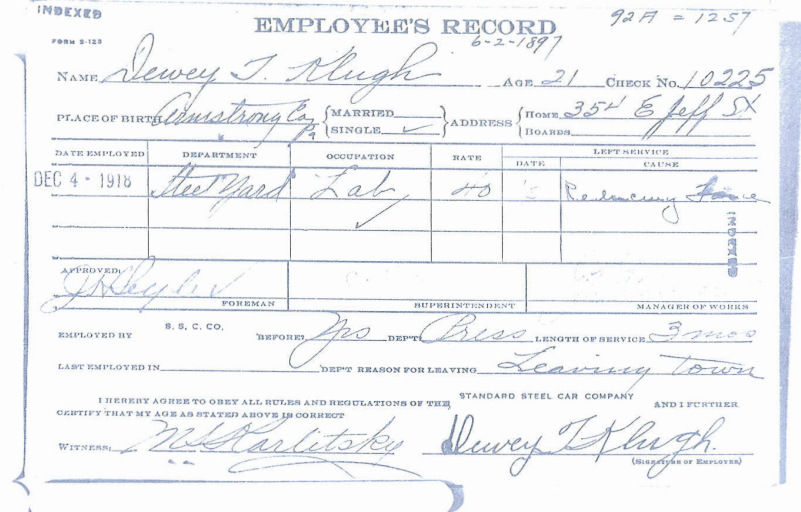 INDEXED
EMPLOYEE'S RECORD
92A = 1257
FORM S-123
6-2-1897
NAME Dewey T. Klugh AGE 21 CHECK No. 10225
PLACE OF BIRTH Armstrong Co, Pa { MARRIED } ADDRESS { HOME 354 E Jeff St
{ SINGLE ✓ } { BOARDS
DATE EMPLOYED DEPARTMENT OCCUPATION RATE LEFT SERVICE
DATE CAUSE
DEC 4 - 1918 Steel Yard Lab 40 Reducing Force
✓
INDEXED
APPROVED:
FOREMAN SUPERINTENDENT MANAGER OF WORKS
EMPLOYED BY S. S. C. CO. BEFORE? Yes DEP'T Press LENGTH OF SERVICE 3 mos
LAST EMPLOYED IN DEP'T REASON FOR LEAVING Leaving Town
I HEREBY AGREE TO OBEY ALL RULES AND REGULATIONS OF THE STANDARD STEEL CAR COMPANY AND I FURTHER
CERTIFY THAT MY AGE AS STATED ABOVE IS CORRECT
WITNESS: Karlitsky Dewey T Klugh.
(SIGNATURE OF EMPLOYEE)